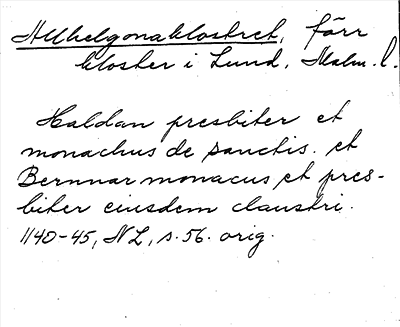 Allhelgonaklostret, förr
kloster i Lund, Malm. l.
Haldan presbiter et
monachus de sanctis. et
Bernnar monacus et pres-
biter eiusdem claustri.
1140-45, NL, s. 56. orig.